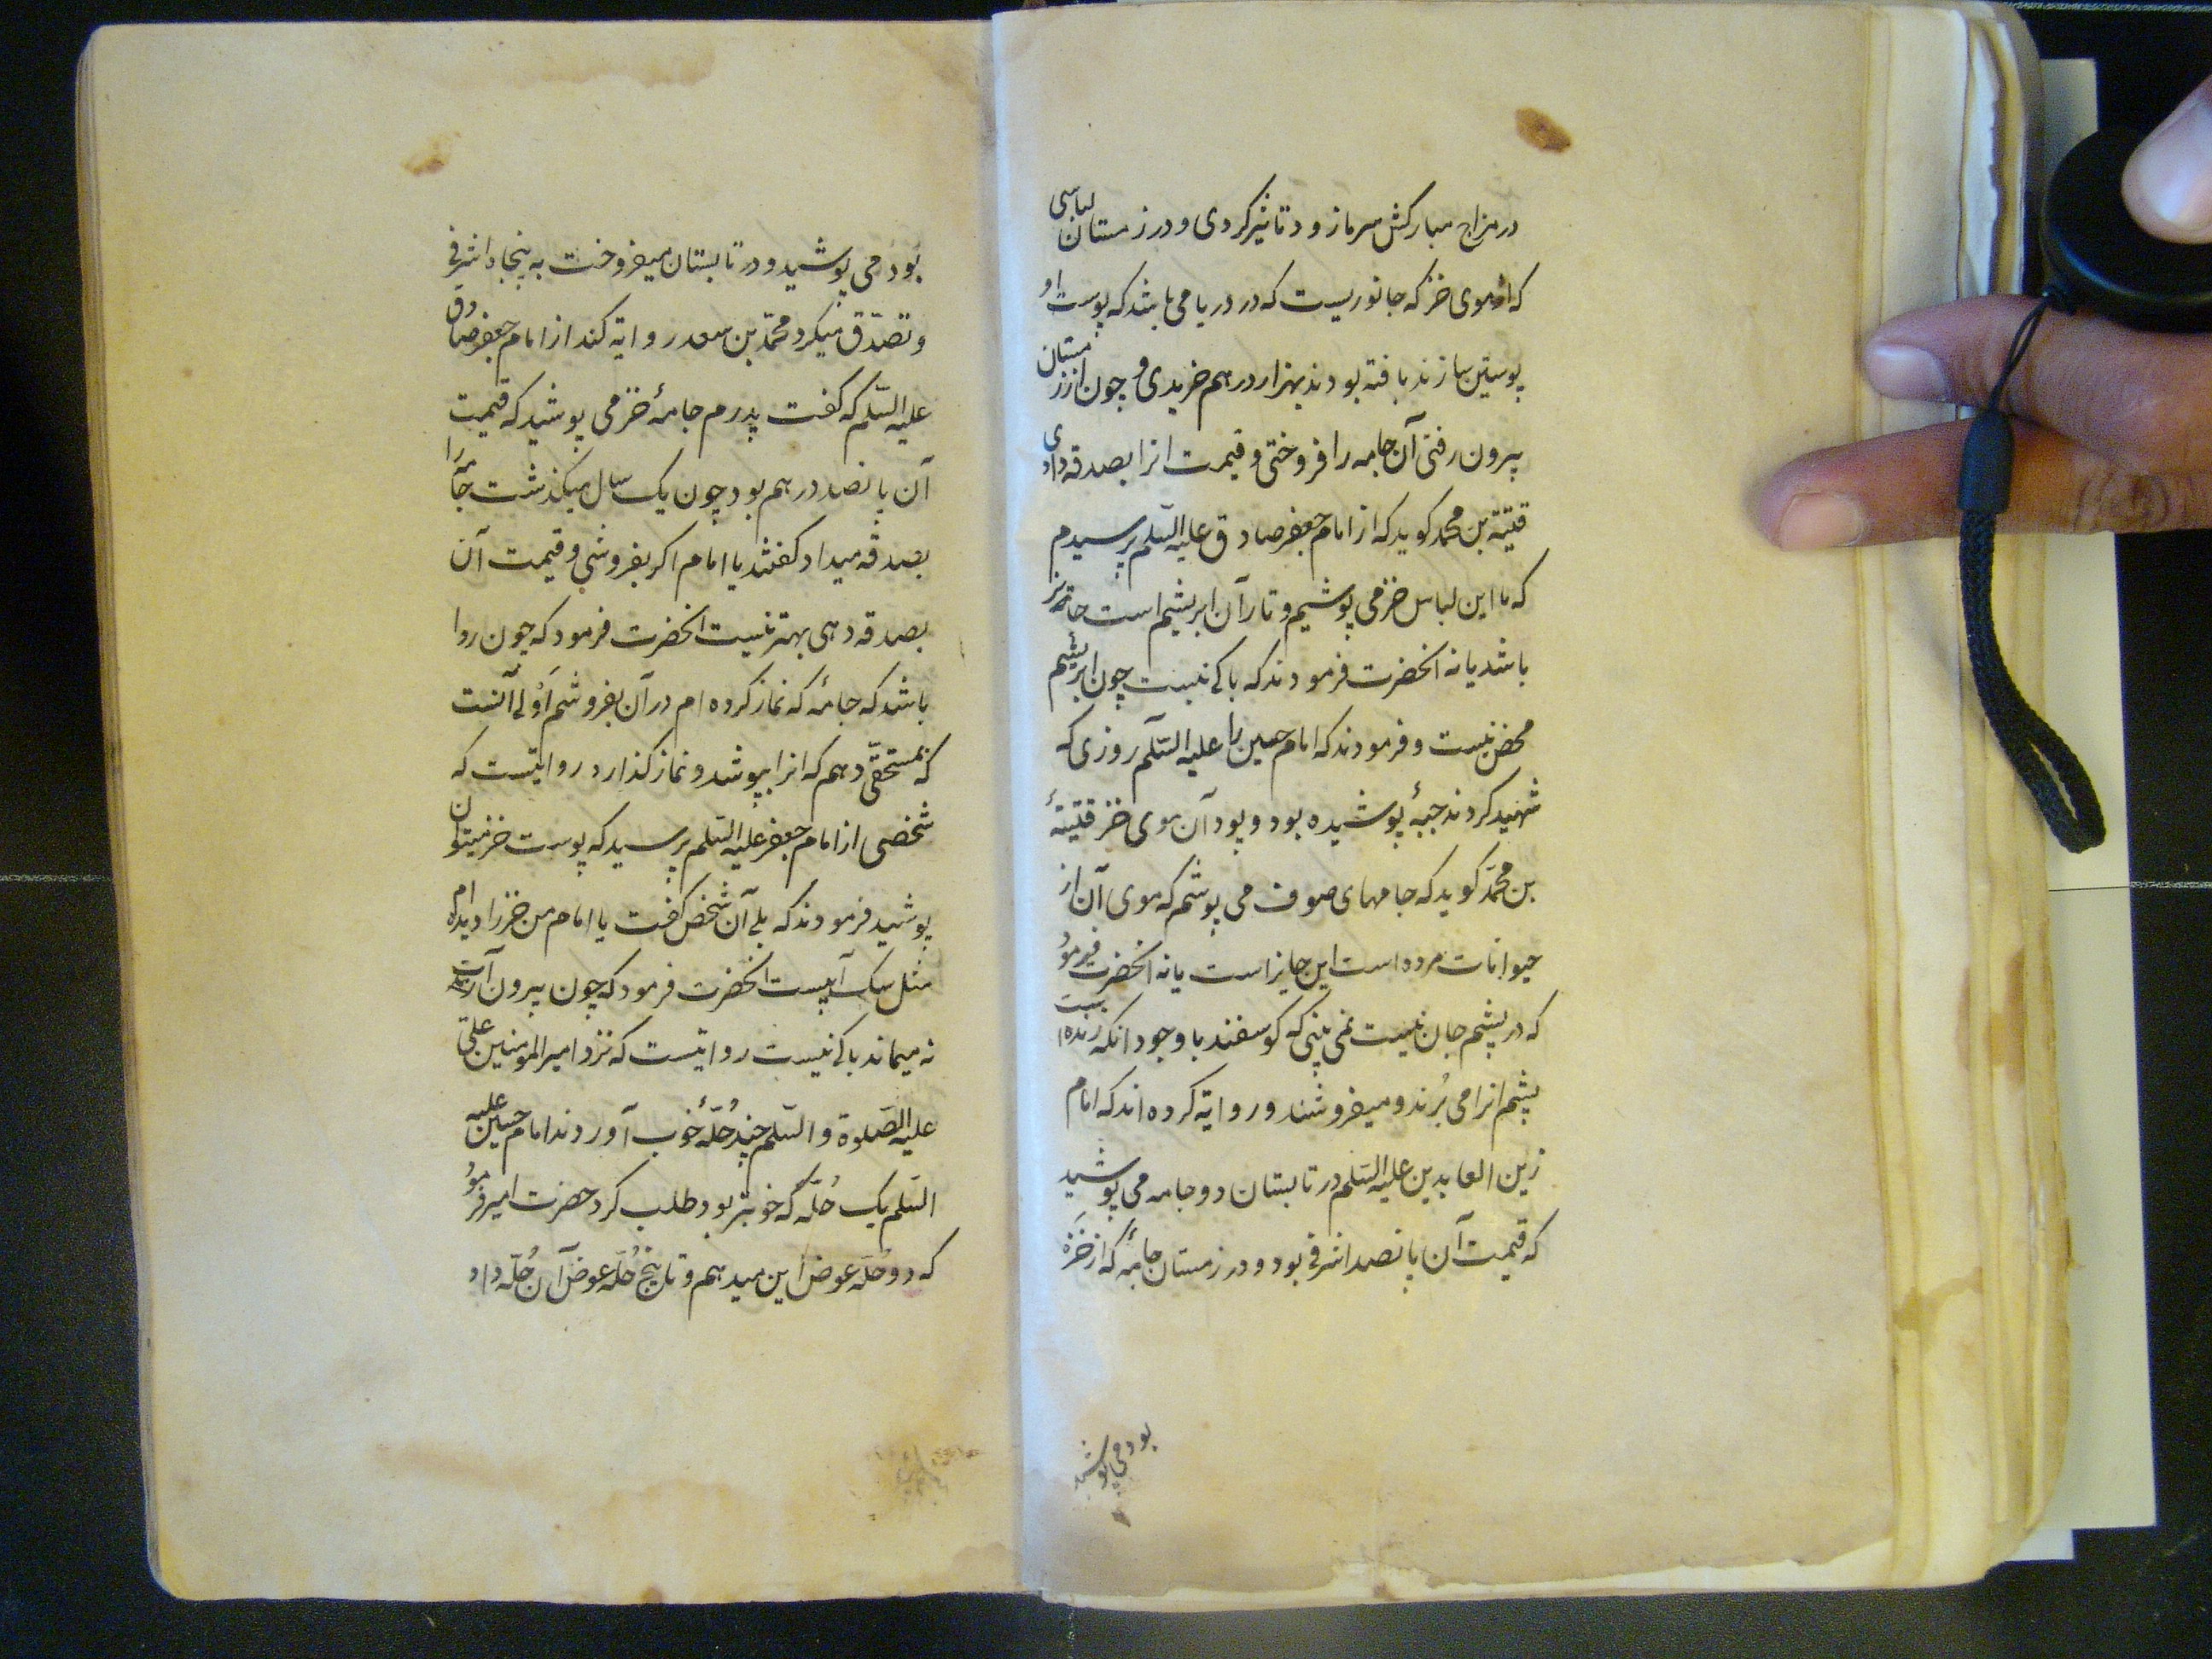 در مزاج مبارکش سرما زود تاثیر کردی و در زمستان لباسی
که از موی خز که جانوریست که در دریا می باشد که پوست او
پوستین سازند بافته بودند بهزار درهم خریدی و چون از زمستان
بیرون رفتی آن جامه را فروختی و قیمت انرا بصدقه دادی
قتیبة بن محمد کوید که از امام جعفر صادق علیه السّلم پرسیدم
که ما این لباس خز می پوشیم و تار آن ابریشم است جایز
باشد یا نه انحضرت فرمودند که باکی نیست چون ابریشم
محض نیست و فرمودند که امام حسین را علیه السّلم روزی که
شهید کردند جبهٔ پوشیده بود و پود آن موی خز قتیبهٔ
بن محمّد کوید که جامهای صوف می پوشم که موی آن از
حیوانات مرده است این جایز است یا نه انحضرت فرمود
که در پشم جان نیست نمی بینی که کوسفند با وجود انکه زنده است
پشم انرا می بُرند و میفروشند و روایة کرده اند که امام
زین العابدین علیه السّلم در تابستان دو جامه می پوشید
که قیمت آن پانصد اشرفی بود و در زمستان جامهٔ که از خَز
بود می پوشید
بود می پوشید و در تابستان میفروخت به پنجاه اشرفی
و تصدّق میکرد محمّد بن سعد روایة کند از امام جعفر صادق
علیه السّلم که کفت پدرم جامهٔ خز می پوشید که قیمت
آن پانصد درهم بود چون یک سال میکذشت جامه را
بصدقه میداد کفتند یا امام اکر بفروشی و قیمت آن
بصدقه دهی بهتر نیست انحضرت فرمود که چون روا
باشد که جامهٔ که نماز کرده ام در آن بفروشم اَوْلی آنست
که بمستحقّی دهم که انرا بپوشد و نماز کذارد روایتست که
شخصی از امام جعفر علیه السّلم پرسید که پوست خز میتوان
پوشید فرمودند که بلی آن شخص کفت یا امام من خز را دیده ام
مثل سک آبیست انحضرت فرمود که چون بیرون آرند
نه میماند باکی نیست روایتست که نزد امیر المومنین علی
علیه الصّلوة و السّلم چند حُلّهٔ خوب آوردند امام حسین علیه
السّلم یک حُلّه که خوبتر بود طلب کرد حضرت امیر فرمود
که دو حُلّه عوض این میدهم و تا پنج حُلّه عوض آن حُلّه داد